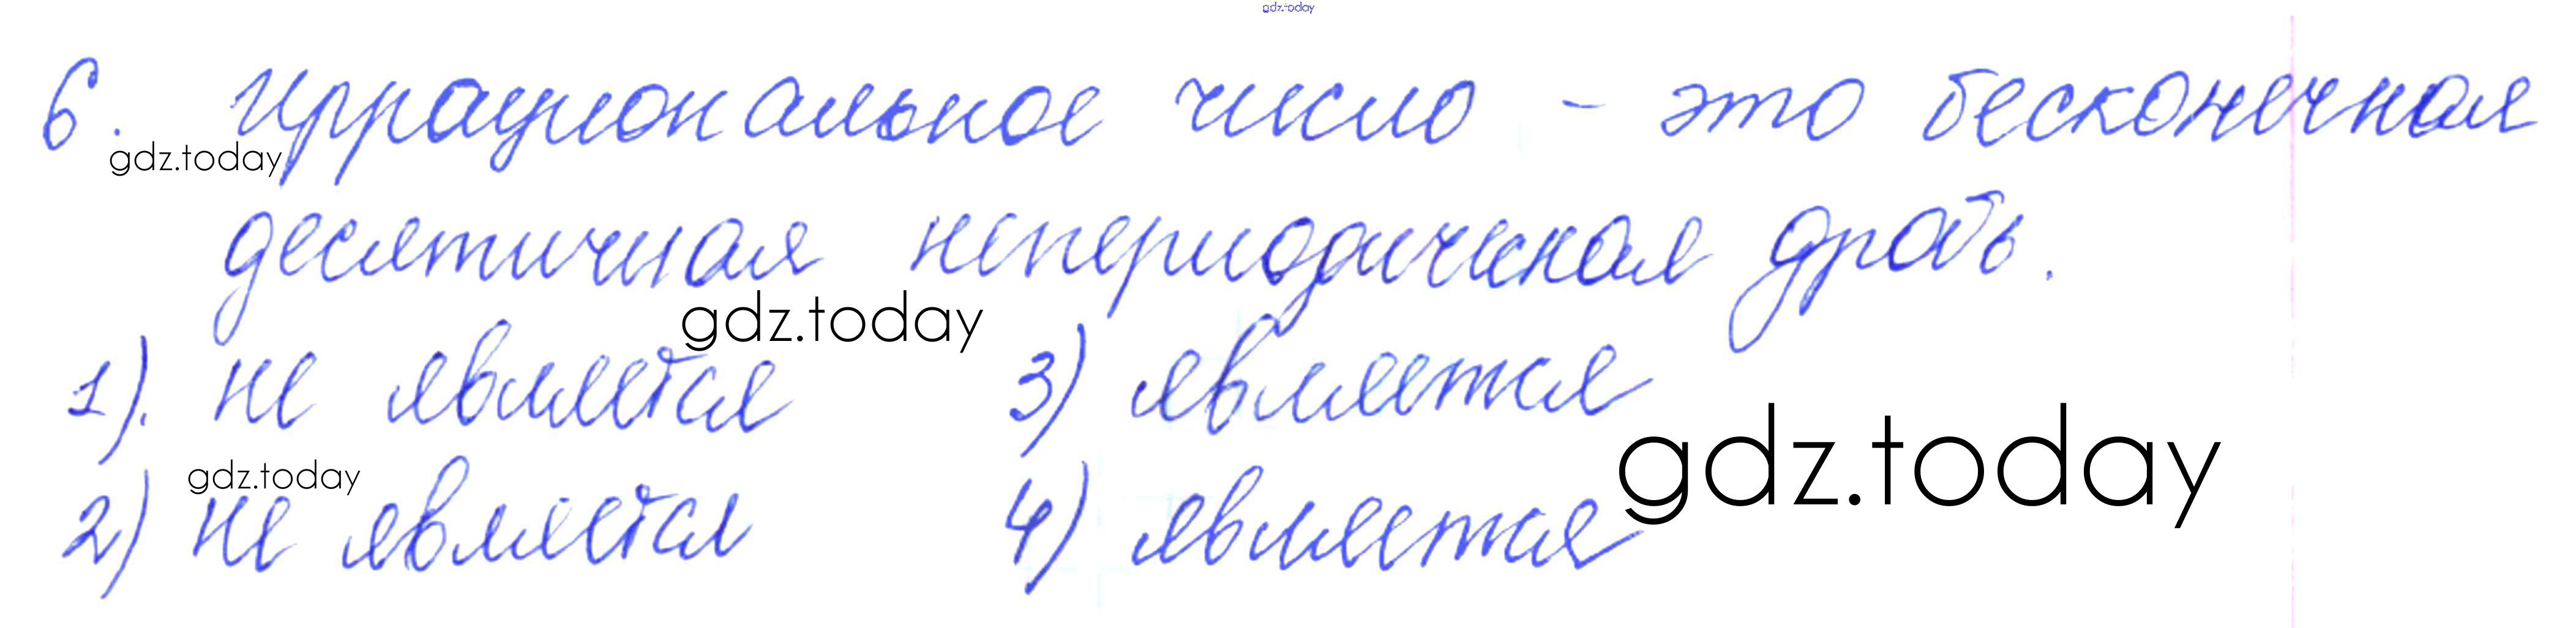 gdz.today
6. Иррациональное число - это бесконечная
gdz.today
десятичная непериодическая дробь.
gdz.today
1). не является 3) является
gdz.today
gdz.today
2) не является 4) является